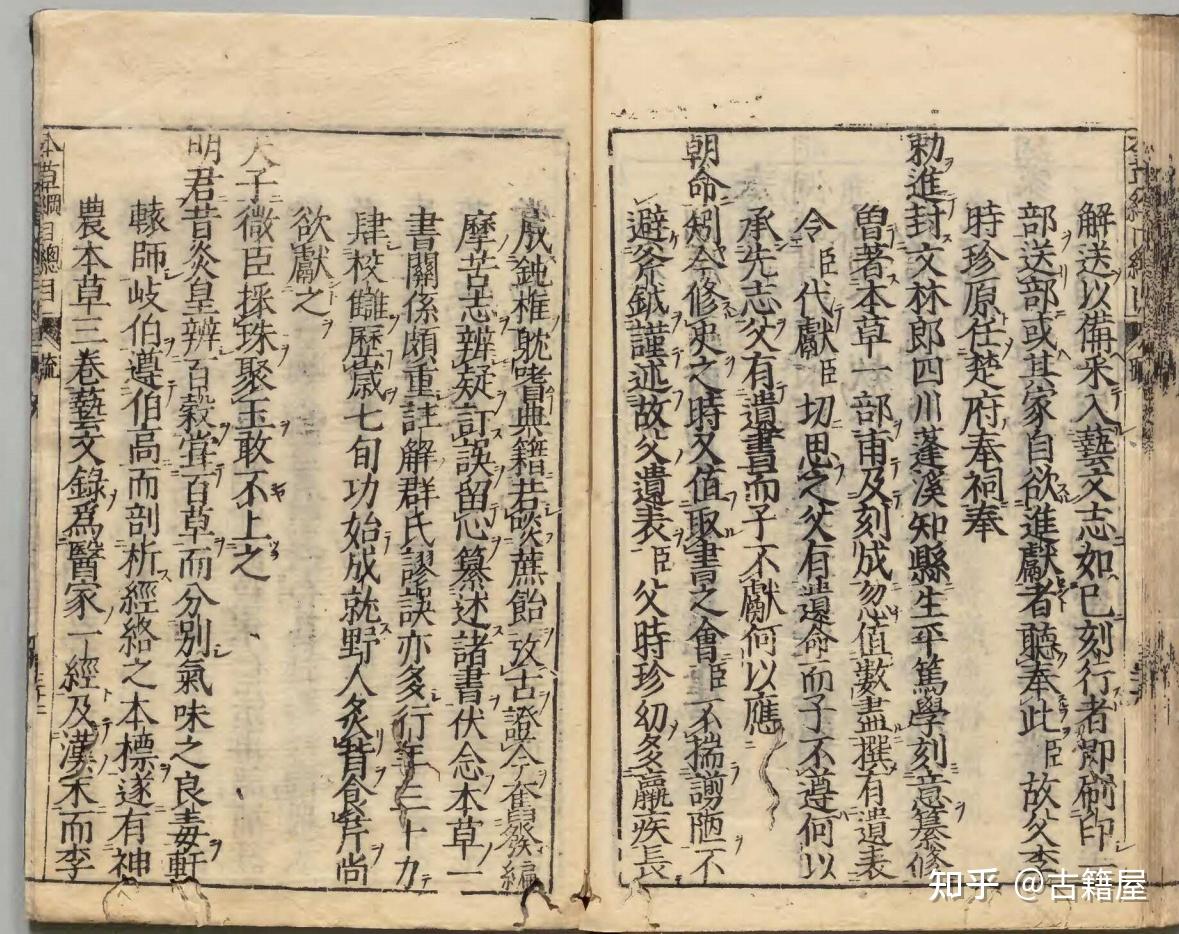 解送以備采入藝文志如已刻行者即刷印一
部送部或其家自欲進獻者聽奉此臣故父李
時珍原任楚府奉祠奉
勅進封文林郎四川蓬溪知縣生平篤學刻意纂修
曽著本草一部甫及刻成忽值數盡撰有遺表
令臣代獻臣切思之父有遺命而子不遵何以
承先志父有遺書而子不獻何以應
朝命矧今修史之時又值取書之會臣不揣謭陋不
避斧鉞謹述故父遺表臣父時珍幼多羸疾長
成鈍椎躭嗜典籍若啖蔗飴攷古證今奮發編
摩苦志辨疑訂誤留心纂述諸書伏念本草一
書關係頗重註解群氏謬誤亦多行年三十力
肆校讎歷歲七旬功始成就野人炙背食芹尚
欲獻之
天子微臣採珠聚玉敢不上之
明君昔炎皇辨百穀嘗百草而分别氣味之良毒軒
轅師岐伯遵伯高而剖析經絡之本標遂有神
農本草三卷藝文錄爲醫家一經及漢末而李
本草綱目總目 疏
知乎 @古籍屋